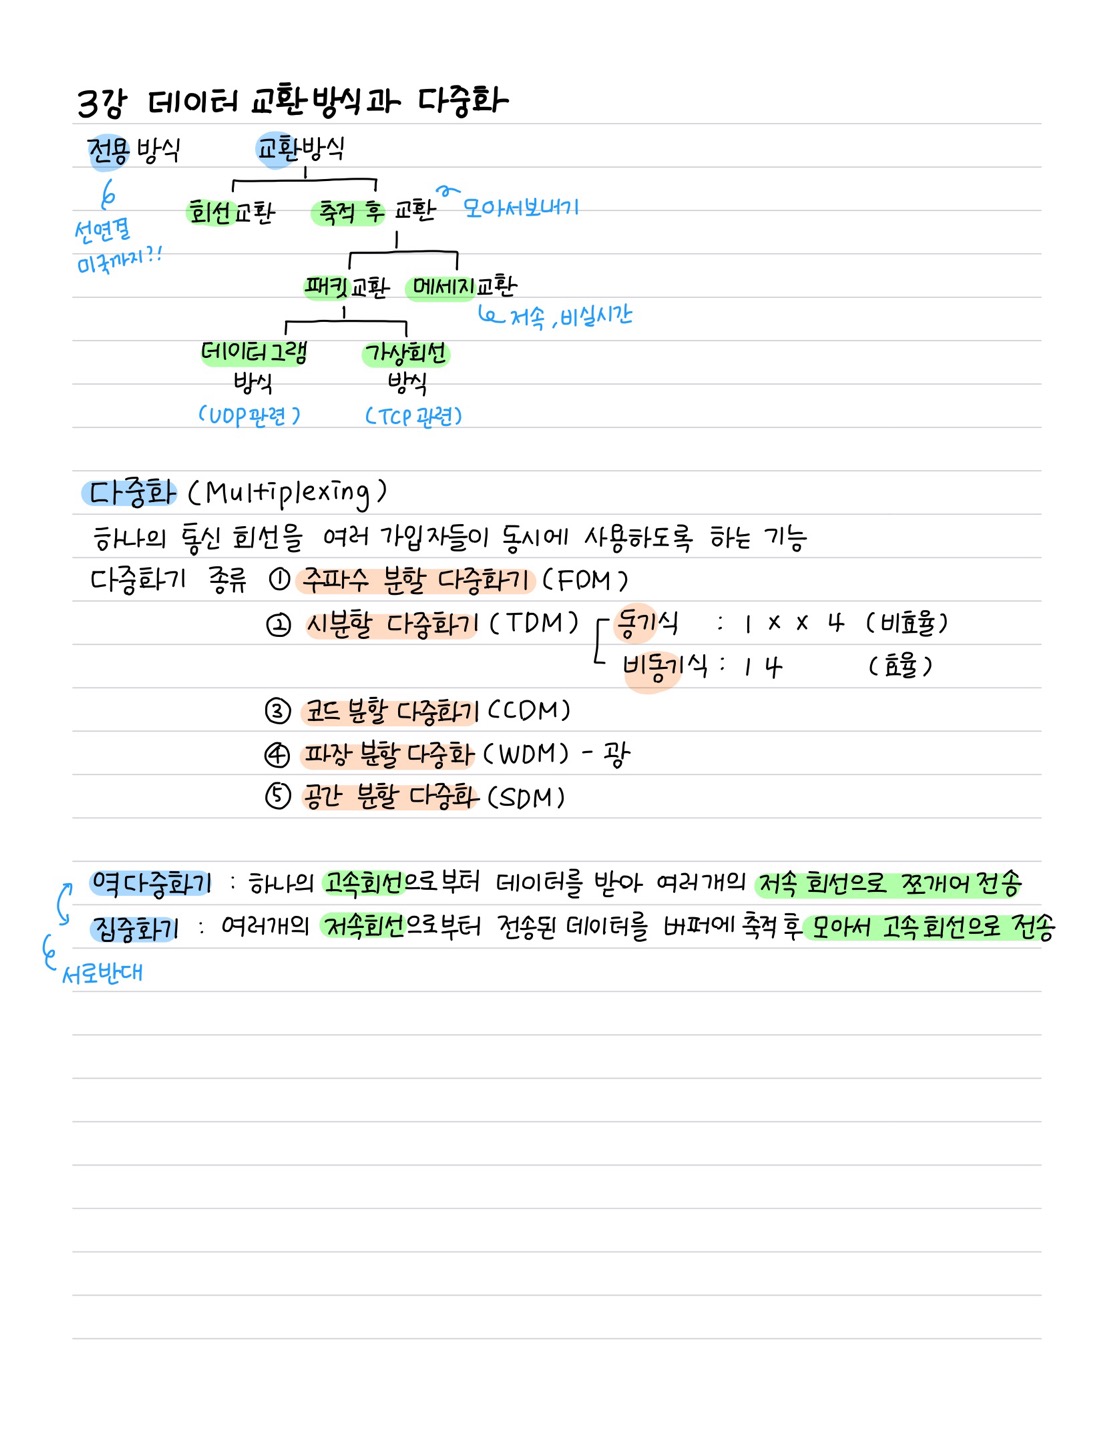 3강 데이터 교환방식과 다중화
전용 방식 교환방식
회선교환 축적 후 교환 모아서보내기
선연결
미국까지?!
패킷교환 메세지교환
저속, 비실시간
데이터그램 가상회선
방식 방식
(UDP관련) (TCP관련)
다중화 (Multiplexing)
하나의 통신 회선을 여러 가입자들이 동시에 사용하도록 하는 기능
다중화기 종류 ① 주파수 분할 다중화기 (FDM)
② 시분할 다중화기 (TDM) 동기식 : 1 x x 4 (비효율)
비동기식 : 1 4 (효율)
③ 코드 분할 다중화기 (CDM)
④ 파장 분할 다중화 (WDM) - 광
⑤ 공간 분할 다중화 (SDM)
역다중화기 : 하나의 고속회선으로부터 데이터를 받아 여러개의 저속 회선으로 쪼개어 전송
집중화기 : 여러개의 저속회선으로부터 전송된 데이터를 버퍼에 축적 후 모아서 고속회선으로 전송
서로반대